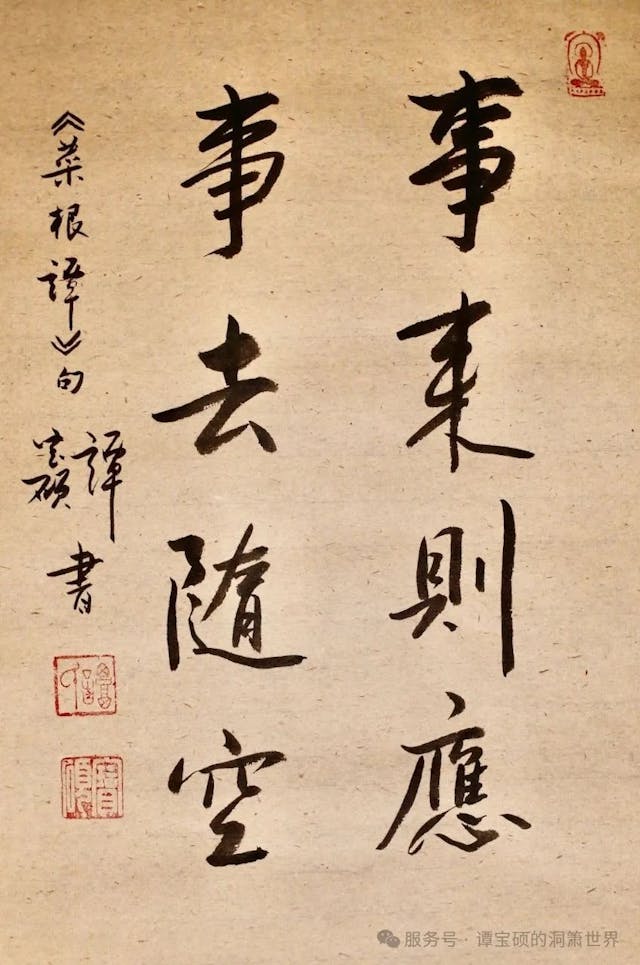 事来則應
事去隨空
《菜根譚》句
譚寶碩書
服务号·谭宝硕的洞箫世界